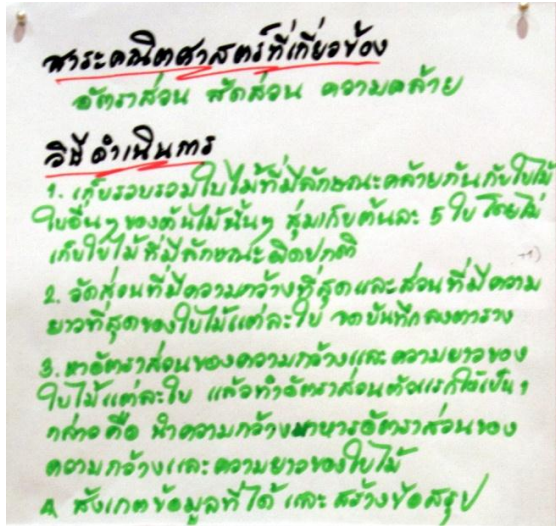 สาระคณิตศาสตร์ที่เกี่ยวข้อง
อัตราส่วน สัดส่วน ความคล้าย
วิธีดำเนินการ
1. เก็บรวบรวมใบไม้ที่มีลักษณะคล้ายกันกับใบไม้
ใบอื่นๆ ของต้นไม้นั้นๆ สุ่มเก็บต้นละ 5 ใบ โดยไม่
เก็บใบไม้ที่มีลักษณะผิดปกติ
2. วัดส่วนที่มีความกว้างที่สุดและส่วนที่มีความ
ยาวที่สุดของใบไม้แต่ละใบ จดบันทึกลงตาราง
3. หาอัตราส่วนของความกว้างและความยาวของ
ใบไม้แต่ละใบ แล้วทำอัตราส่วนตัวแรกให้เป็น 1
กล่าวคือ นำความกว้างมาหารอัตราส่วนของ
ความกว้างและความยาวของใบไม้
4. สังเกตข้อมูลที่ได้ และ สร้างข้อสรุป